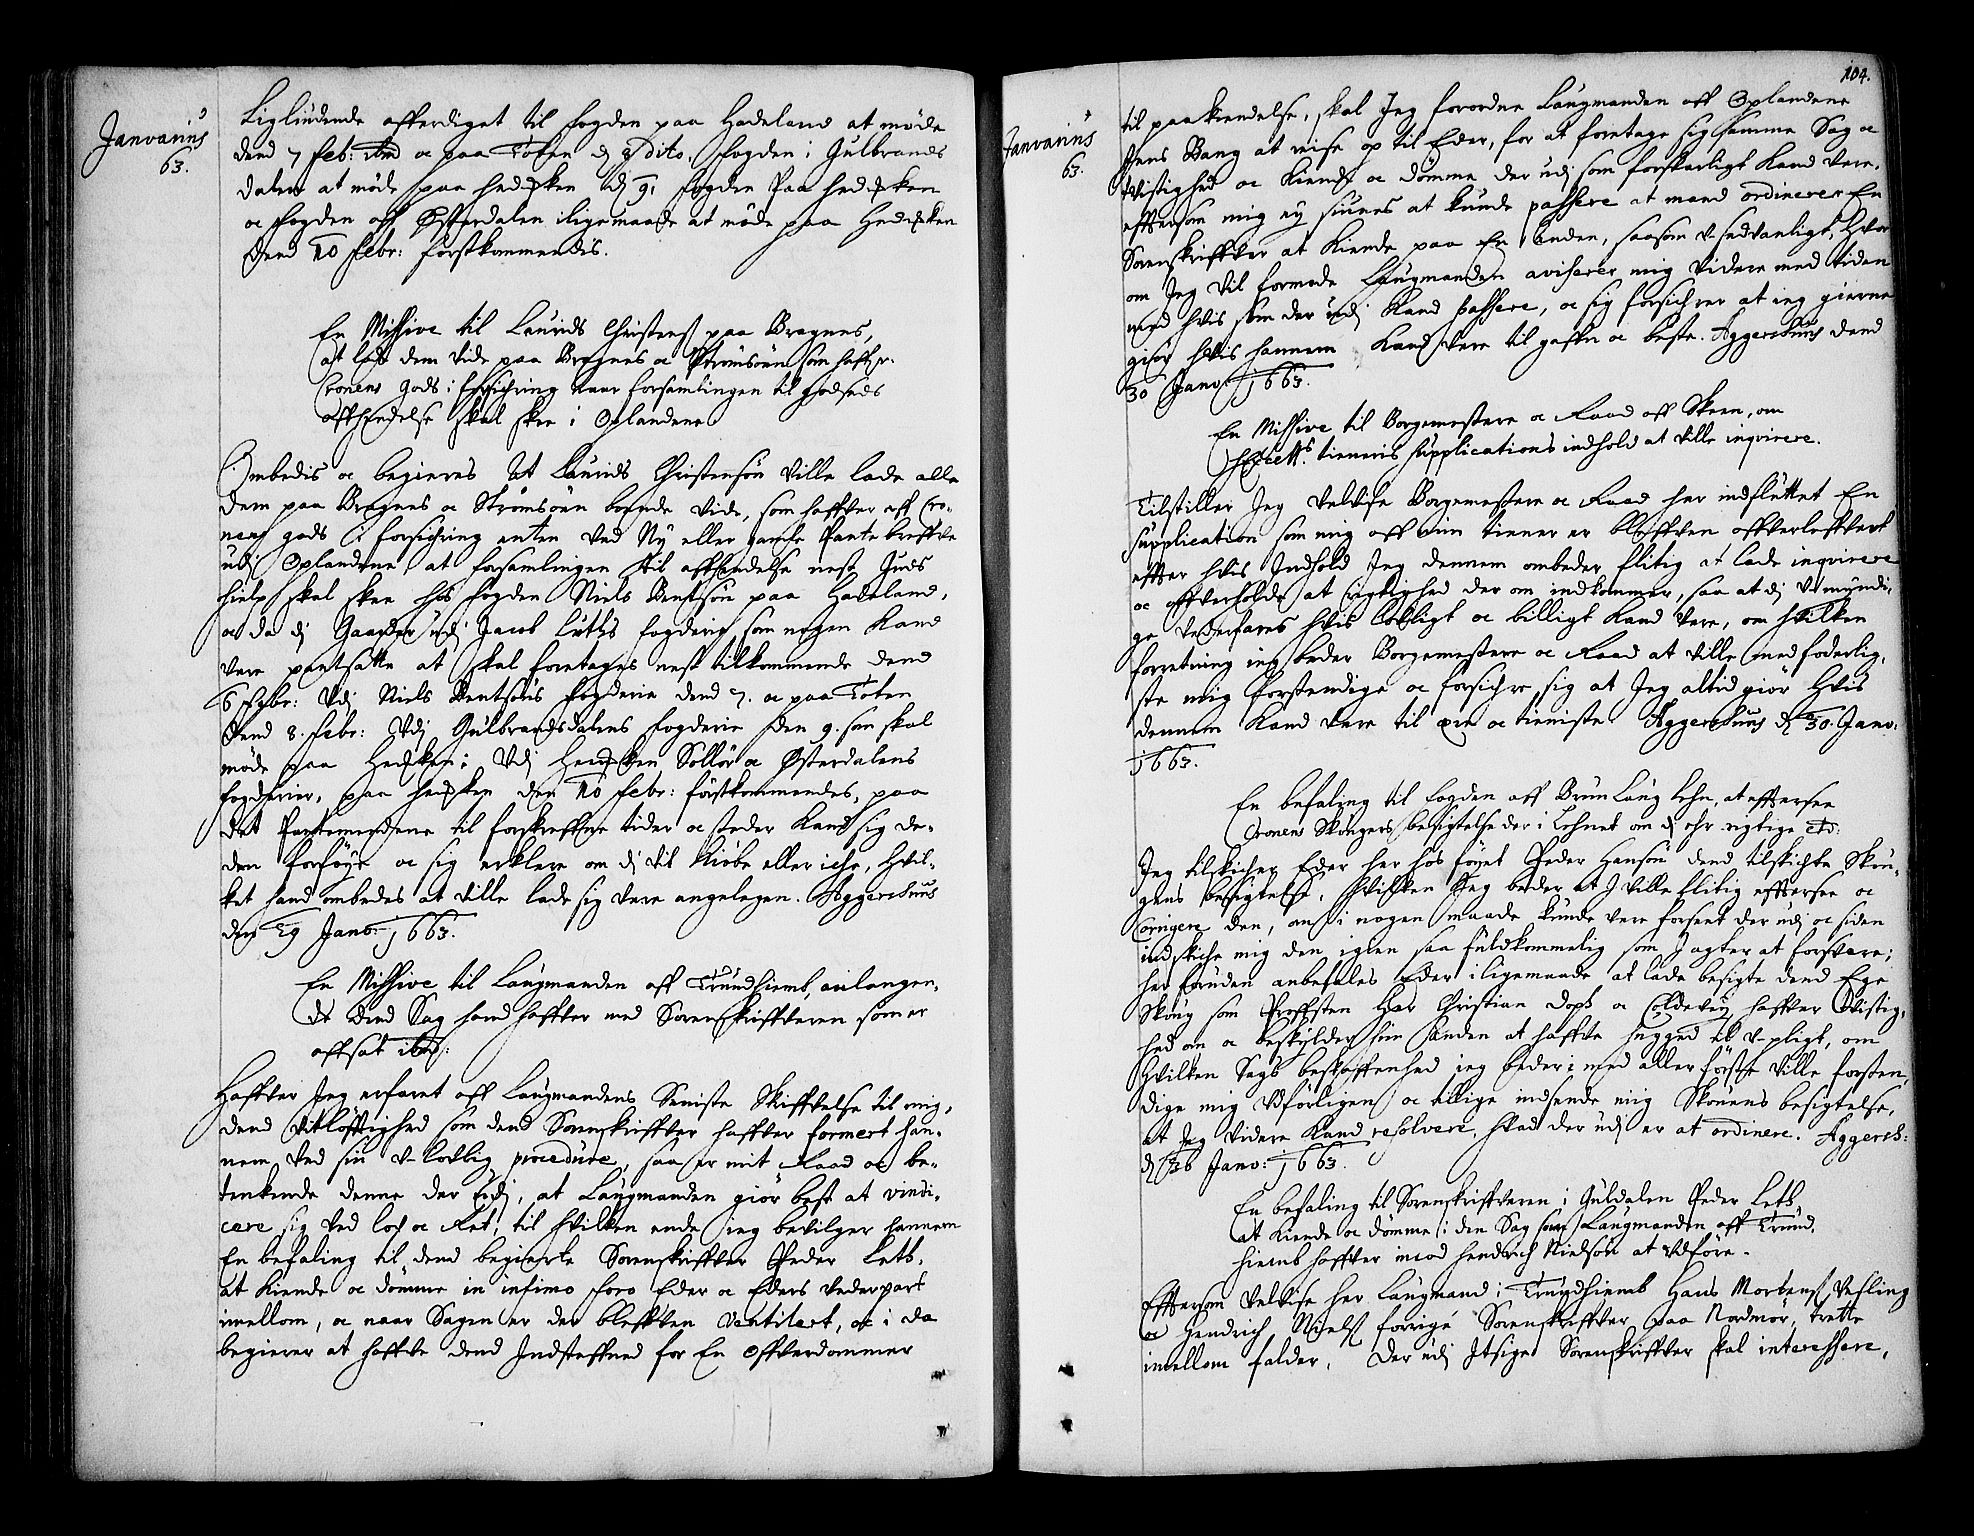 Janvarius
63.
Liglüdende afferdiget til fogden paa Hadeland at møde
dend 7 feb: ibd oc paa Toten d 8 dito, fogden i Gulbrands
dalen at møde paa hedmken d 9. fogden paa hedmken
oc fogden aff Østerdalen iligemaade at møde paa Hedmken
dend 10 febr: förstkommendis.
En Missive til Laurids Christens: paa Bragnes,
at lade dem vide paa Bragnes oc Strömsöen som haffver
Cronens gods i forsichring naar forsamlingen til godseds
affhendelse skal skee i Oplandene
Ombedis oc begieres at Laurids Christensön ville lade alle
dem paa Bragnes oc Strömsöen boende vide, som haffver aff Cro-
nens gods i forsichring enten ved Ny eller gamle Pante breffve
udj Oplandene at forsamlingen til affhendelse nest Guds
hielp skal skee hos fogden Niels Bentsön paa Hadeland,
oc da dj Gaarder udj Jacob Luths fogderie, som nogen Kand
vere pantsatte at skal foretages nest tilkommende dend
6 febr: Udj Niels Bentsöns fogderie dend 7. oc paa Toten
dend 8. febr: Udj Gulbrandsdalens fogderie den 9. som skal
møde paa Hedmken: Udj Hedmken Sollör oc Østerdalens
fogderier, paa hedmken den 10 febr: förstkommendes, paa
det Panthererne til forskreffne tider oc steder Kand sig de-
den forföye oc sig erklere om dj vil kiöbe eller iche, hvil-
ket hand ombedes at ville lade sig vere angelegen. Aggershuus
den 29 Janv: 1663.
En Missive til Laugmanden aff Trundhiemb, anlangen-
de dend Sag hand haffver med Sorenskriffveren som er
affsat ibd:
Haffver Jeg erfaret aff Laugmandens Seniste Skriffvelse til mig,
dend Vitlöfftighed som dend Sorenskriffver haffver formert han-
nem ved sin v-lovlig procedure, saa er mit Raad oc be-
tenkende denne der udj, at Laugmanden giör best at vindi-
cere sig ved lov oc Ret, til hvilken ende jeg bevilger hannem
En befaling til dend begierte Sorenskriffver Peder Leth,
at Kiende oc dömme in infimo foro Eder oc Eders Vederpart
imellom, oc naar Sagen er der bleffven Ventilert, oc i da
begierer at haffve dend Indsteffned for En offverdommer
104.
Janvarius
63.
til paakiendelse, skal Jeg forordne Laugmanden aff Oplandene
Jens Bang at reise op til Eder, for at foretage sig samme Sag oc
tvistighed oc Kiende oc dömme der udj som forsvarligt Kand vere,
efftersom mig ey siunes at kunde passere at mand ordinerer En
Sorenskriffver at Kiende paa En anden, saasom v-sedvanligt, Hvor
om Jeg vil formode Laugmanden aviserer mig videre med tiden
med hvis som der udj Kand passere, oc sig forsichrer at ieg gierne
giör hvis hannem Kand vere til gaffn oc beste. Aggershuus dend
30 Janv: 1663.
En Missive til Borgemestere oc Raad aff Skeen, om
tieneris supplications indhold at ville inqvirere.
Tilstiller Jeg velvise Borgemestere oc Raad her indsluttet En
supplication som mig aff min tiener er bleffven offverleffvert
effter hvis Indhold Jeg dennem ombeder flitig at lade inqvirere
oc offverholde at rigtighed der om indkommer, saa at dj Umyndi-
ge vederfares hvis lovligt oc billigt Kand vere, om hvilken
forretning ieg beder Borgemestere oc Raad at ville med foderlig-
ste mig forstendige oc forsichre sig at Jeg altid giör hvis
dennem Kand vere til ere oc tieniste Aggershuus d 30. Janv:
1663.
En befaling til fogden aff Brunlaug lehn, at effterse
Cronens Skougers besigtelse der i Lehnet om dj ehr rigtige etc:
Jeg tilskicher Eder her hos föyet Peder Hansön dend tilskichte Skou-
gens besigtelse, hvilken Jeg beder at I ville flitig effterse oc
Corrigere den, om i nogen maade kunde vere forseet der udj oc siden
indskiche mig den igien saa fuldkommelig som I agter at forsvare;
her foruden anbefales Eder iligemaade at lade besigte dend Ege
Skoug som Profsten Her Christian Dop oc Coldevey haffver tvistig-
hed om oc beskylder hin anden at haffve hugged til v-pligt, om
hvilken Sags beskaffenhed ieg beder i med aller förste ville forsten-
dige mig udförligen oc tillige indsende mig Skouens besigtelse,
at Jeg videre Kand resolvere, hvad der udj er at ordinere. Aggersh:
d 36 Janv: 1663.
En befaling til Sorenskriffveren i Guldalen Peder Leth,
at Kiende oc dömme i den Sag som Laugmanden aff Trund-
hiemb haffver imod Hendrich Nielsön at udföre.
Efftersom velvise her Laugmand i Trundhiemb Hans Mortens: Vesling
oc Hendrich Niels: forrige Sorenskriffver paa Nordmör, trette
imellom falder, der udj Itsige Sorenskriffver skal interessere,